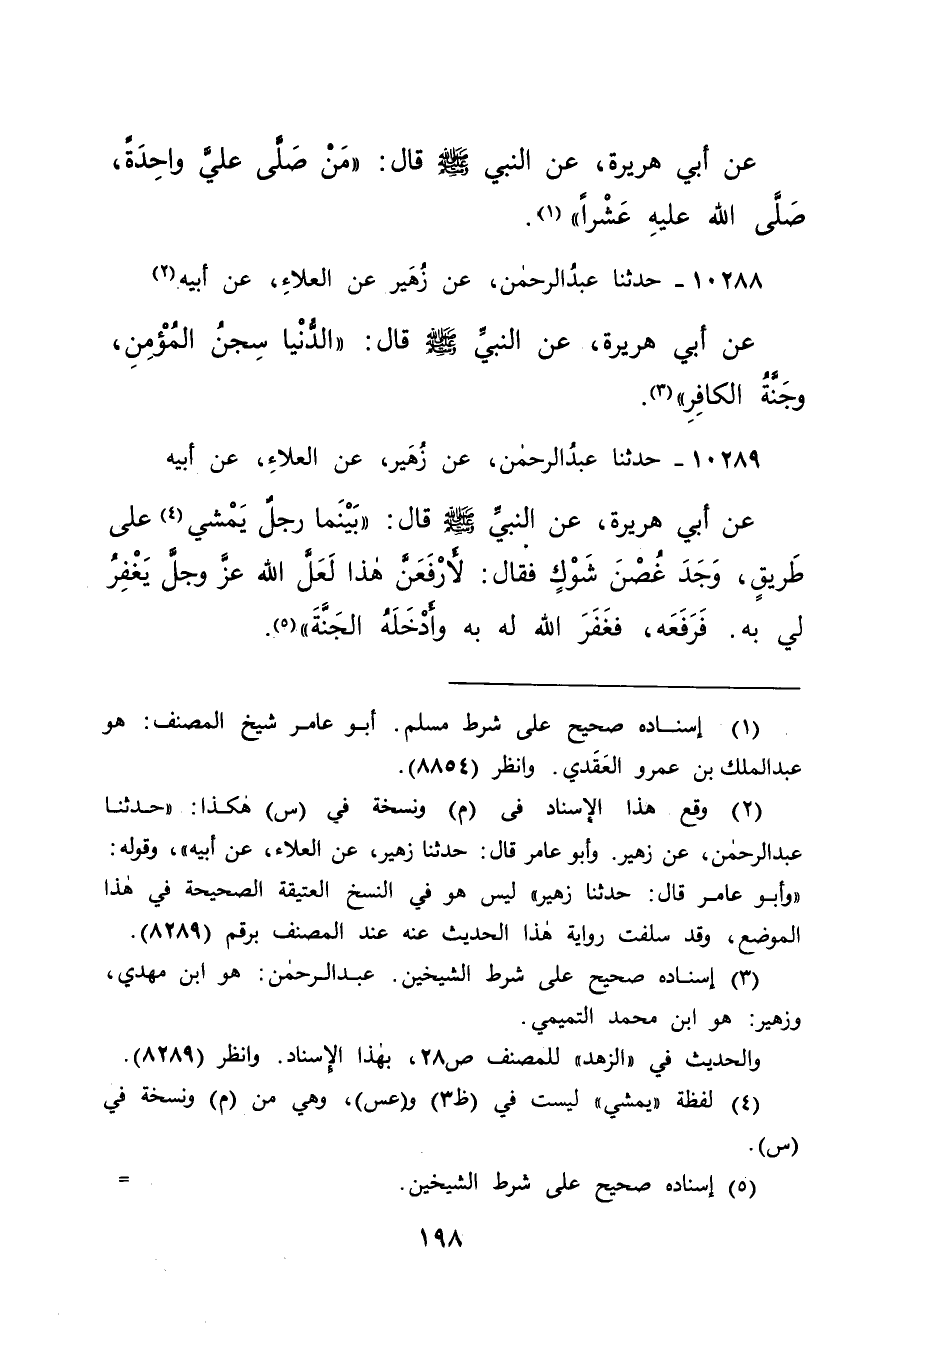 عن أبي هريرة، عن النبي ﷺ قال: «مَنْ صَلَّى عليَّ واحِدَةً،
صَلَّى الله عليهِ عَشْراً»(١).
١٠٢٨٨ - حدثنا عبدُالرحمٰن، عن زُهَير عن العلاءِ، عن أبيه(٢)
عن أبي هريرة، عن النبيِّ ﷺ قال: «الدُّنْيا سِجنُ المُؤْمِنِ،
وجَنَّةُ الكافِرِ»(٣).
١٠٢٨٩ - حدثنا عبدُالرحمٰن، عن زُهَير، عن العلاءِ، عن أبيه
عن أبي هريرة، عن النبيِّ ﷺ قال: «بَيْنَما رجلٌ يَمْشي(٤) على
طَريقٍ، وَجَدَ غُصْنَ شَوْكٍ فقال: لَأَرْفَعَنَّ هٰذا لَعَلَّ الله عزَّ وجلَّ يَغْفِرُ
لي به. فَرَفَعَه، فغَفَرَ الله له به وأَدْخَلَهُ الجَنَّةَ»(٥).
(١) إسناده صحيح على شرط مسلم. أبو عامر شيخ المصنف: هو
عبدالملك بن عمرو العَقَدي. وانظر (٨٨٥٤).
(٢) وقع هذا الإسناد فى (م) ونسخة في (س) هٰكذا: «حدثنا
عبدالرحمٰن، عن زهير. وأبو عامر قال: حدثنا زهير، عن العلاء، عن أبيه»، وقوله:
«وأبو عامر قال: حدثنا زهير» ليس هو في النسخ العتيقة الصحيحة في هٰذا
الموضع، وقد سلفت رواية هٰذا الحديث عنه عند المصنف برقم (٨٢٨٩).
(٣) إسناده صحيح على شرط الشيخين. عبدالرحمٰن: هو ابن مهدي،
وزهير: هو ابن محمد التميمي.
والحديث في «الزهد» للمصنف ص٢٨، بهٰذا الإسناد. وانظر (٨٢٨٩).
(٤) لفظة «يمشي» ليست في (ظ٣) و(عس)، وهي من (م) ونسخة في
(س).
(٥) إسناده صحيح على شرط الشيخين. =
١٩٨